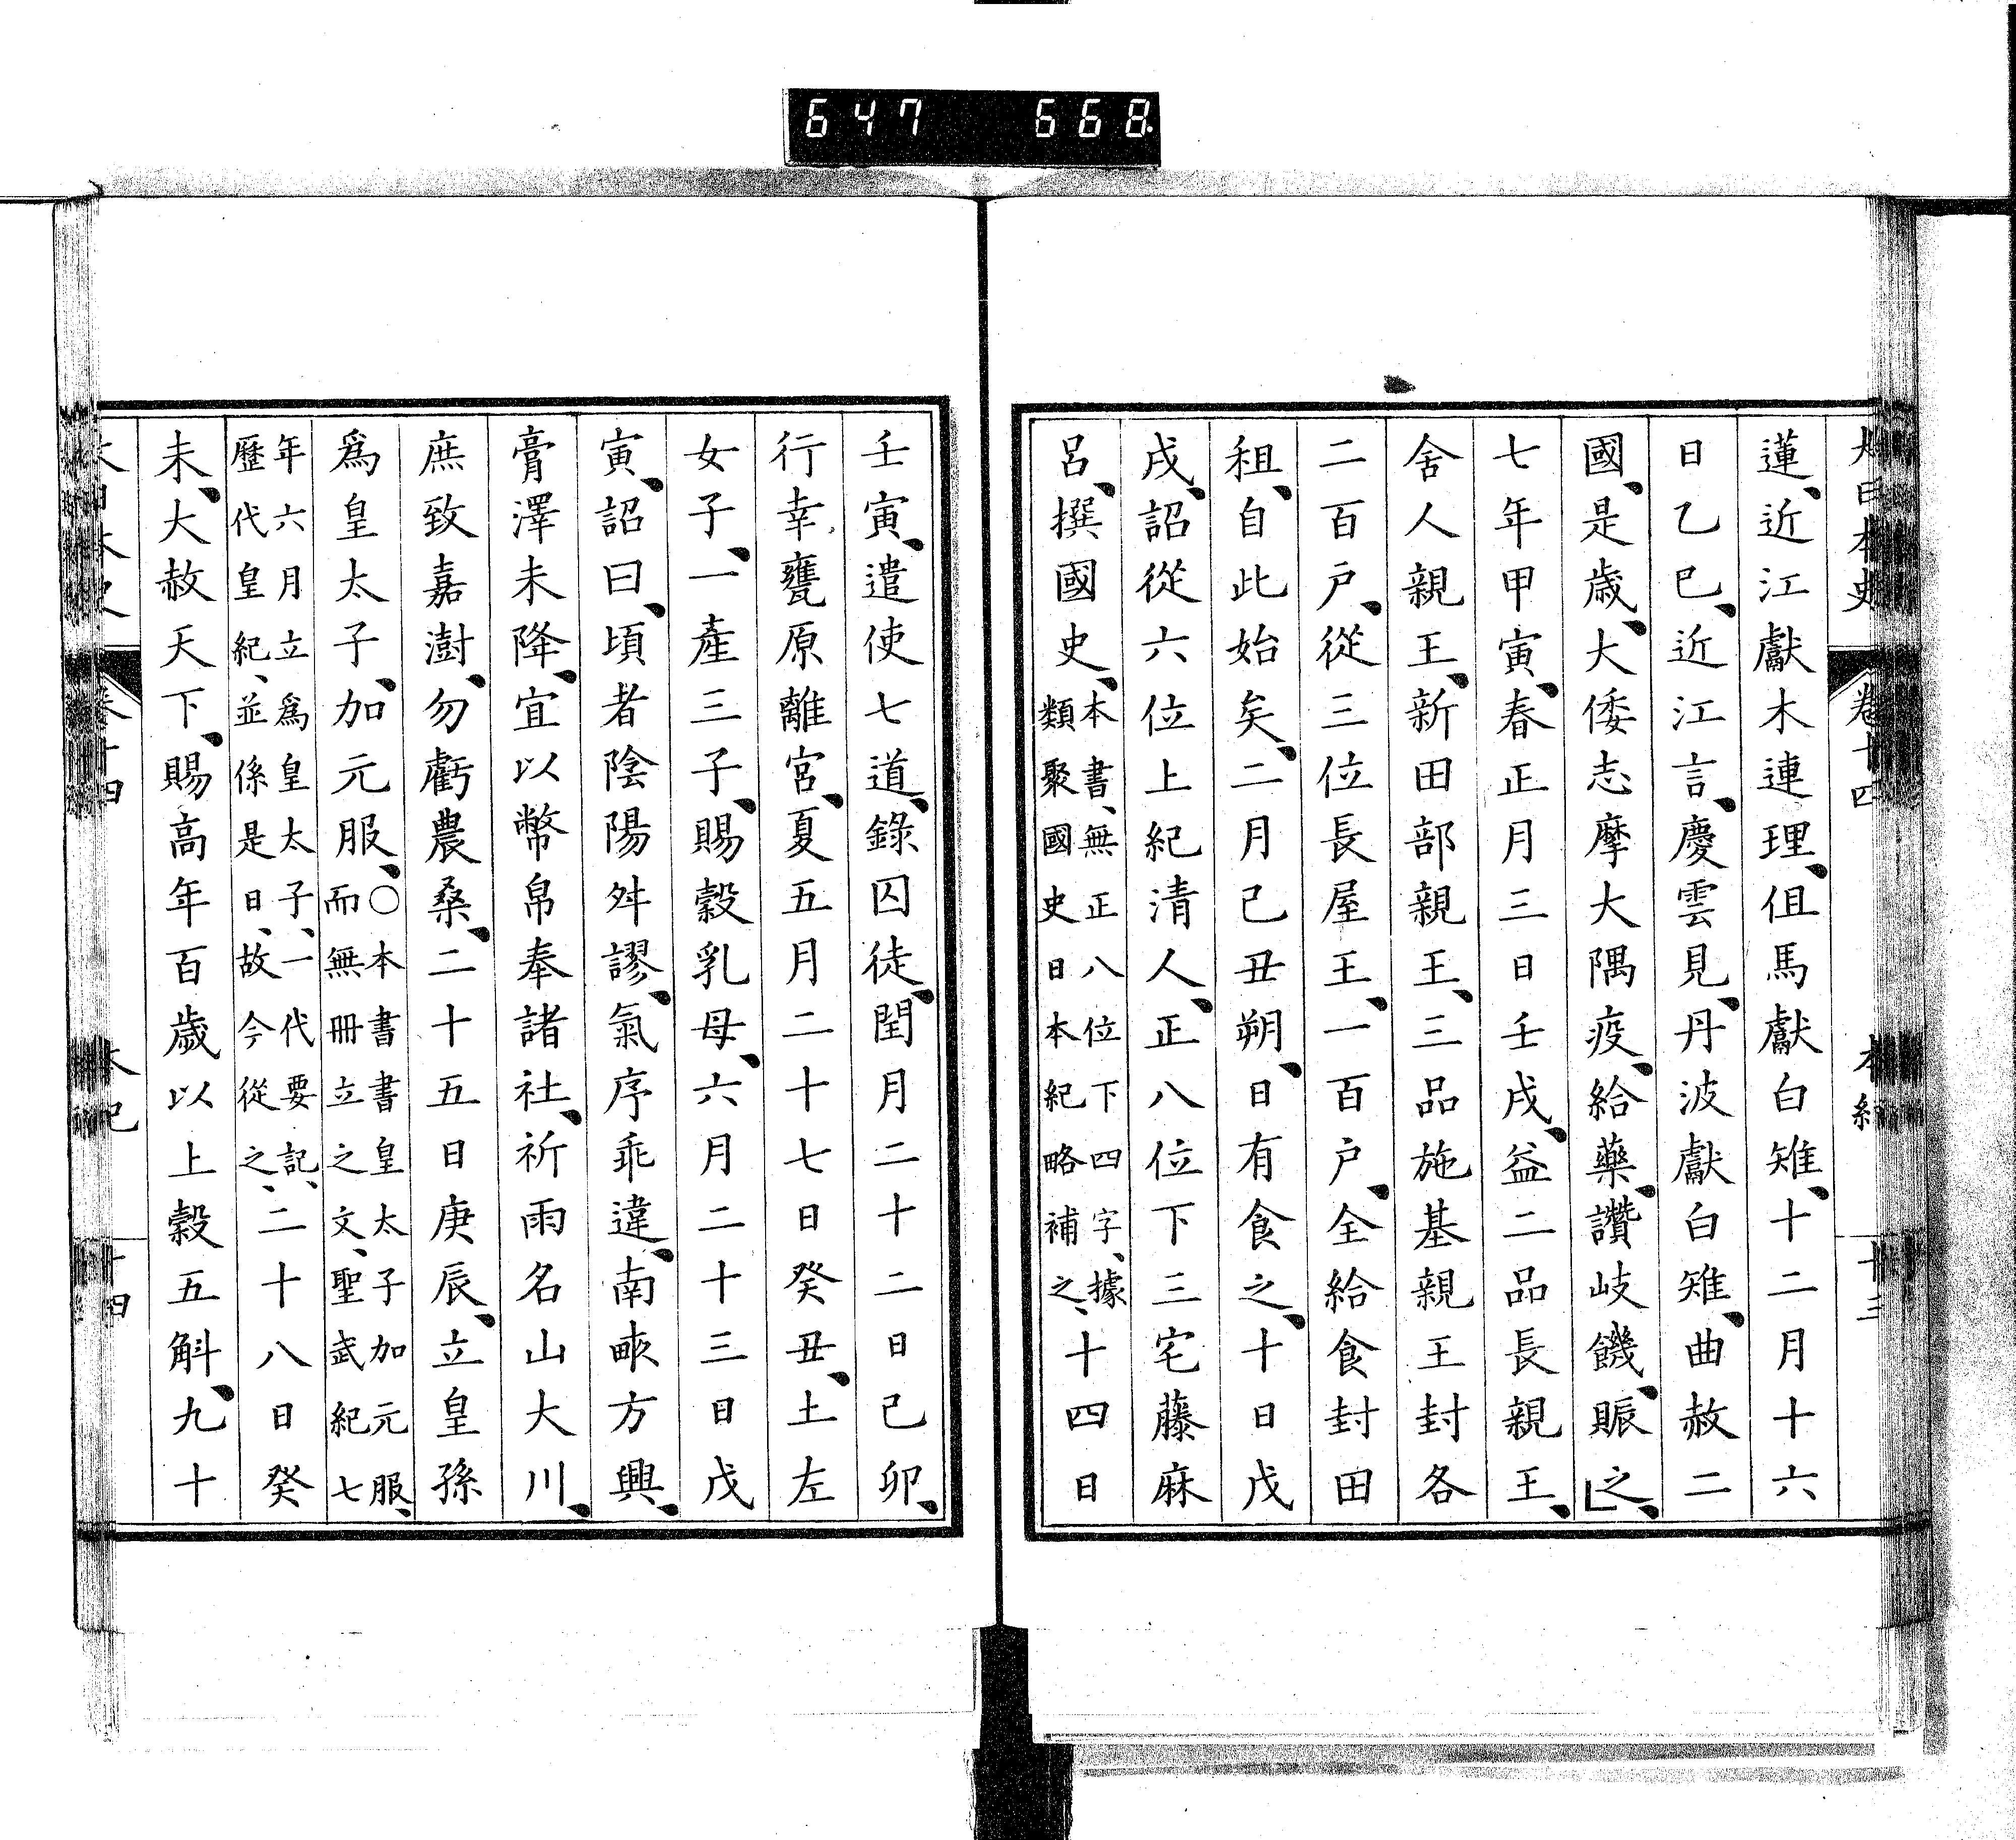 647 668
大日本史 卷十四 本紀 十三
蓮、近江獻木連理、但馬獻白雉、十二月十六
日乙巳、近江言、慶雲見、丹波獻白雉、曲赦二
國、是歲、大倭志摩大隅疫、給藥、讚岐饑、賑之、
七年甲寅、春正月三日壬戌、益二品長親王、
舍人親王、新田部親王、三品施基親王封各
二百戶、從三位長屋王、一百戶、全給食封田
租、自此始矣、二月己丑朔、日有食之、十日戊
戌、詔從六位上紀清人、正八位下三宅藤麻
呂、撰國史、本書、無正八位下四字、據類聚國史日本紀略補之、十四日
壬寅、遣使七道、錄囚徒、閏月二十二日己卯、
行幸甕原離宮、夏五月二十七日癸丑、土左
女子、一產三子、賜穀乳母、六月二十三日戊
寅、詔曰、頃者陰陽舛謬、氣序乖違、南畝方興、
膏澤未降、宜以幣帛奉諸社、祈雨名山大川、
庶致嘉澍、勿虧農桑、二十五日庚辰、立皇孫
爲皇太子、加元服、○本書書皇太子加元服、而無冊立之文、聖武紀七
年六月立爲皇太子、一代要記、歷代皇紀、並係是日、故今從之、二十八日癸
未、大赦天下、賜高年百歲以上穀五斛、九十
大日本史 卷十四 本紀 十四